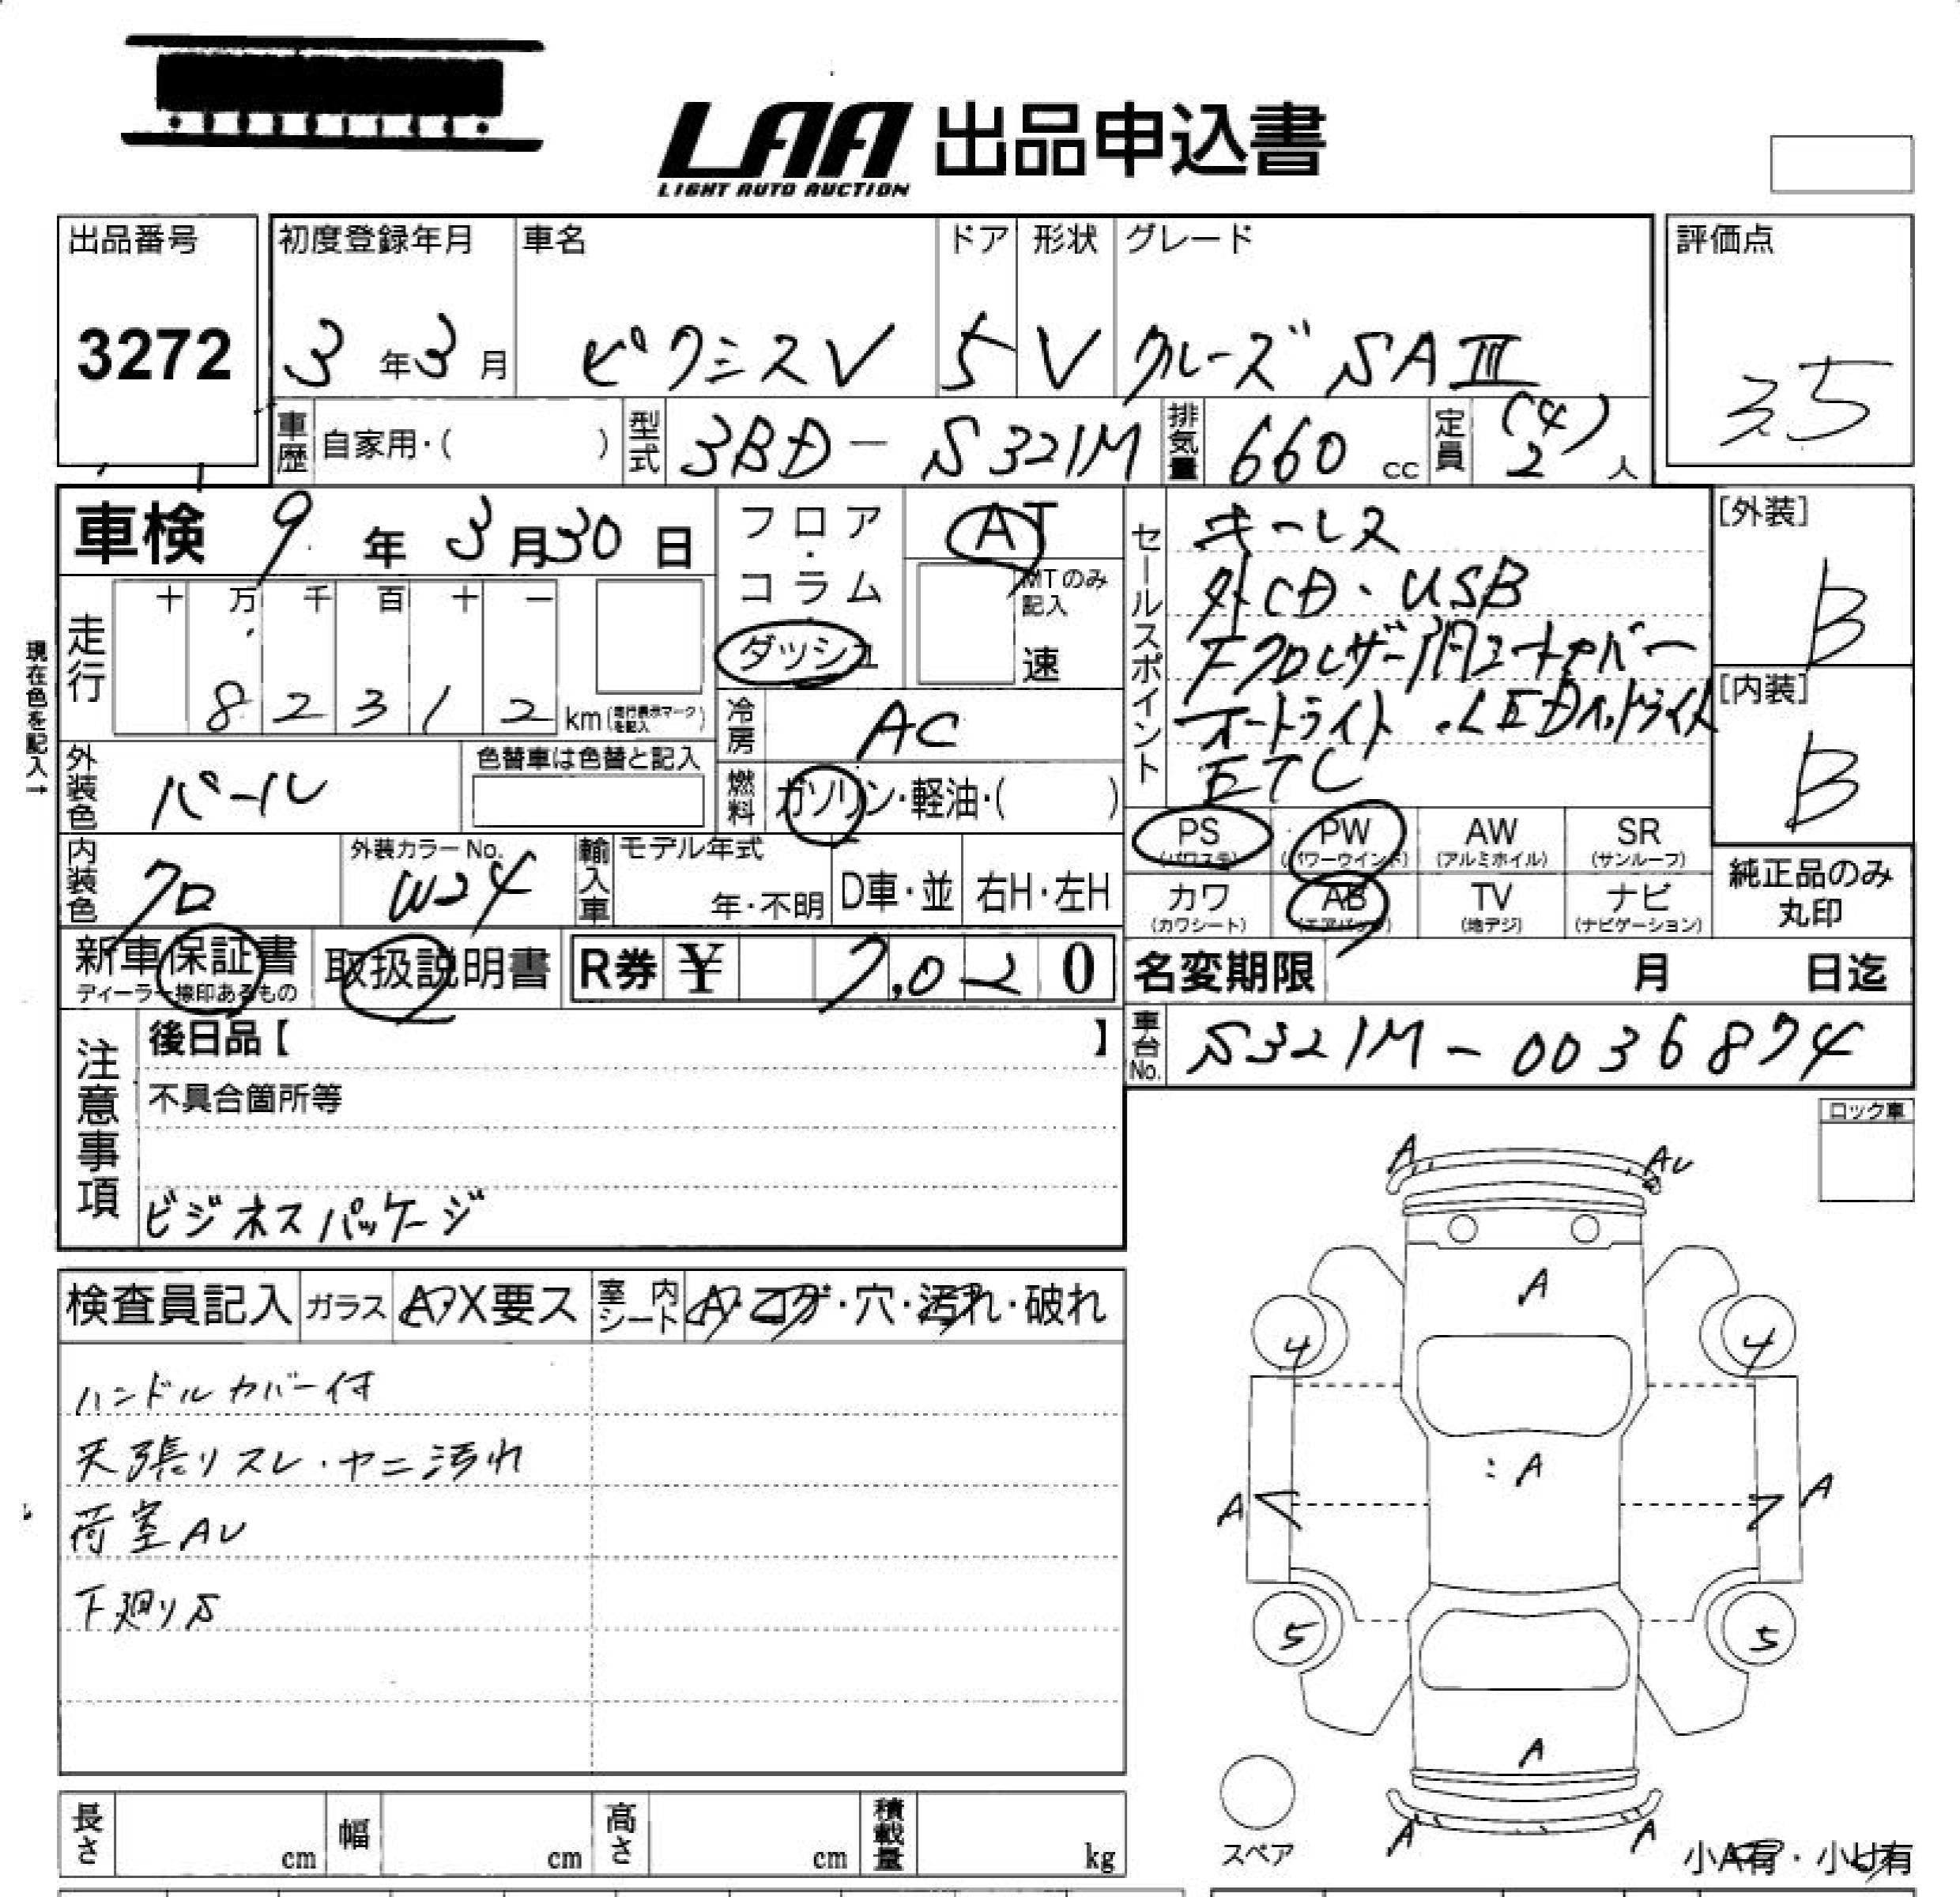 LAA 出品申込書
LIGHT AUTO AUCTION
出品番号
3272
初度登録年月
3年3月
車名
ピクシスV
ドア
5
形状
V
グレード
クルーズ SAⅢ
評価点
3.5
車歴 自家用・( )
型式 3BD-S321M
排気量 660 cc
定員 (4) 2 人
車検 9年3月30日
フロア・コラム・ダッシュ
AT
MTのみ記入
速
現在色を記入→
走行 十 万 千 百 十 一
8 2 3 1 2 km (走行表示マークを記入)
冷房 AC
外装色 パール
色替車は色替と記入
燃料 ガソリン・軽油・( )
内装色 クロ
外装カラーNo. W24
輸入車 モデル年式
年・不明 D車・並 右H・左H
新車保証書
ディーラー捺印あるもの
取扱説明書
R券 ¥ 7,020
セールスポイント
キーレス
外CD・USB
オートライト・LEDヘッドライト
ETC
[外装]
B
[内装]
B
PS (パワステ) PW (パワーウインド) AW (アルミホイル) SR (サンルーフ)
カワ (カワシート) AB (エアバッグ) TV (地デジ) ナビ (ナビゲーション)
純正品のみ丸印
名変期限 月 日迄
車台No. S321M-0036874
注意事項
後日品【 】
不具合箇所等
ビジネスパッケージ
検査員記入 ガラス A・X要ス 室内シート A・コゲ・穴・汚れ・破れ
ハンドルカバー付
天張りスレ・ヤニ汚れ
荷室AU
下廻りS
ロック車
A AU
A
4 4
A
A A
5 5
A
A A
スペア
小A有・小U有
長さ cm 幅 cm 高さ cm 積載量 kg